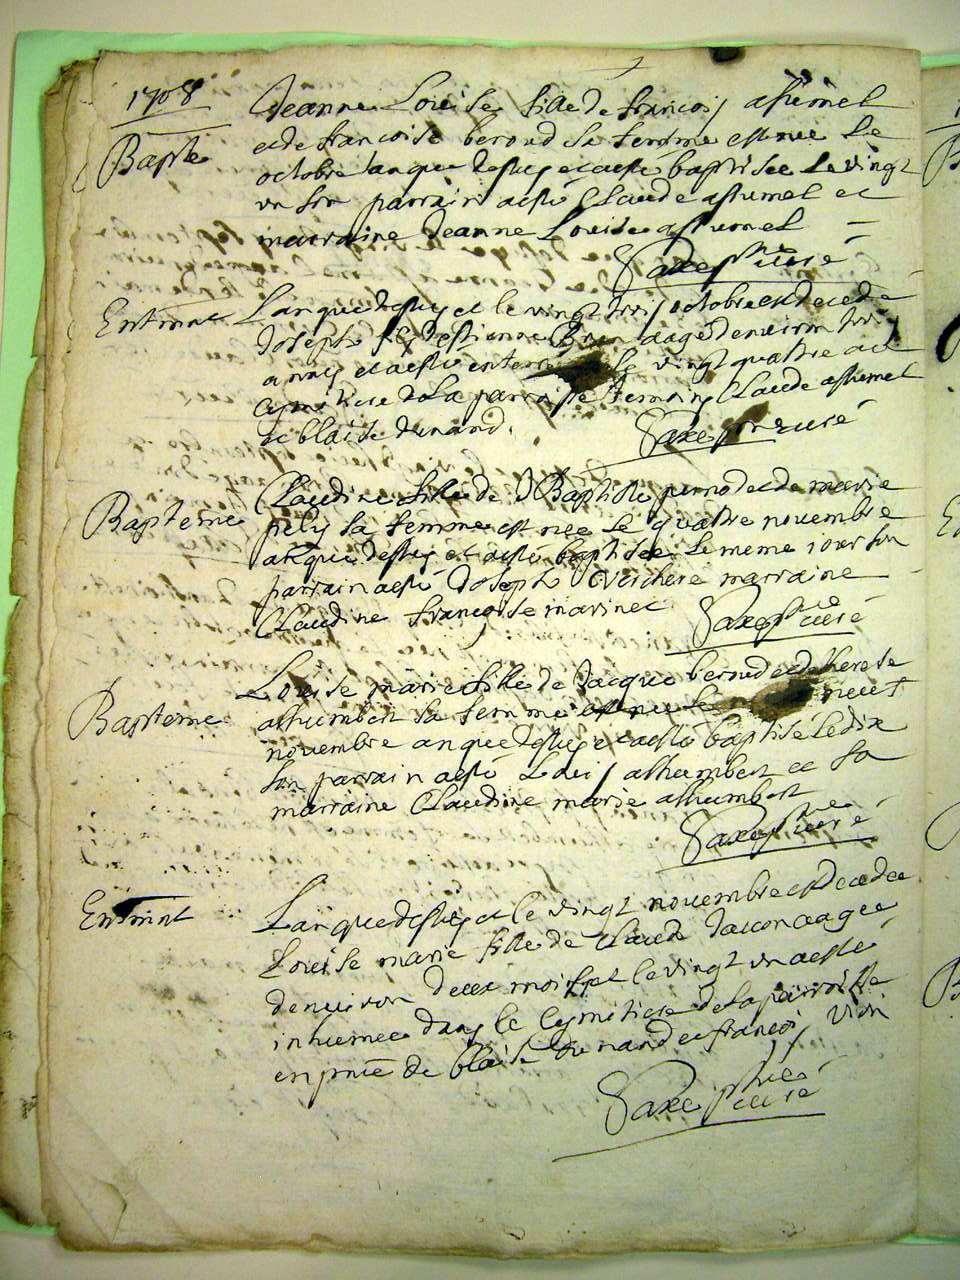 1708
Bapte
Jeanne Louise fille de francois assumel
et de francoise beroud sa femme est nee le
octobre lan que dessus et a esté baptisee le vingt
un son parrain a esté Claude assumel et
marraine Jeanne Louise assumel
Curé
Enterrmt
Lan que dessus et le vingt trois octobre est decede
Joseph fils destienne aagé denviron trois
annes et a esté enterré le vingt quattre au
cymetiere de la parroisse temoins Claude assumel
et blaise dunand.
Curé
Bapteme
Claudine fille de J Baptiste pernod et de marie
sa femme est nee le quattre novembre
an que dessus et a esté baptisee le meme iour son
parrain a esté Joseph marraine
Claudine francoise marinet
Curé
Bapteme
Louise marie fille de Jacque beroud et de therese
alhumbert sa femme est nee le neuf
novembre an que dessus et a esté baptisé le dix
son parrain a esté Louis alhumbert et sa
marraine Claudine marie alhumbert
Curé
Enterrmt
Lan que dessus et le vingt novembre est decedee
Louise marie fille de Claude aagee
denviron deux mois et le vingt un a esté
inhumee dans le cymetiere de la parroisse
en pnce de blaise dunand et francois
Curé